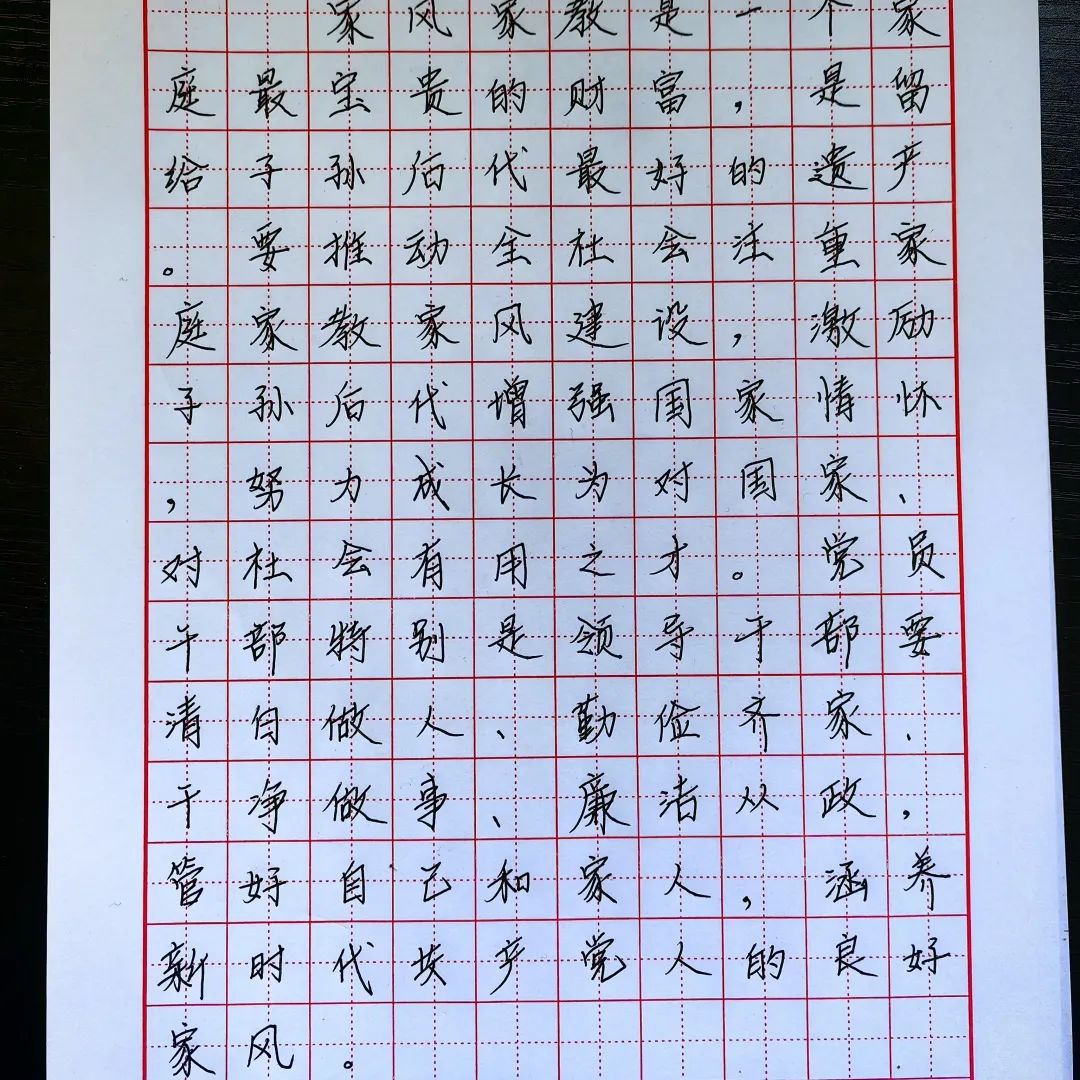 家风家教是一个家
庭最宝贵的财富，是留
给子孙后代最好的遗产
。要推动全社会注重家
庭家教家风建设，激励
子孙后代增强国家情怀
，努力成长为对国家、
对社会有用之才。党员
干部特别是领导干部要
清白做人、勤俭齐家、
干净做事、廉洁从政，
管好自己和家人，涵养
新时代共产党人的良好
家风。